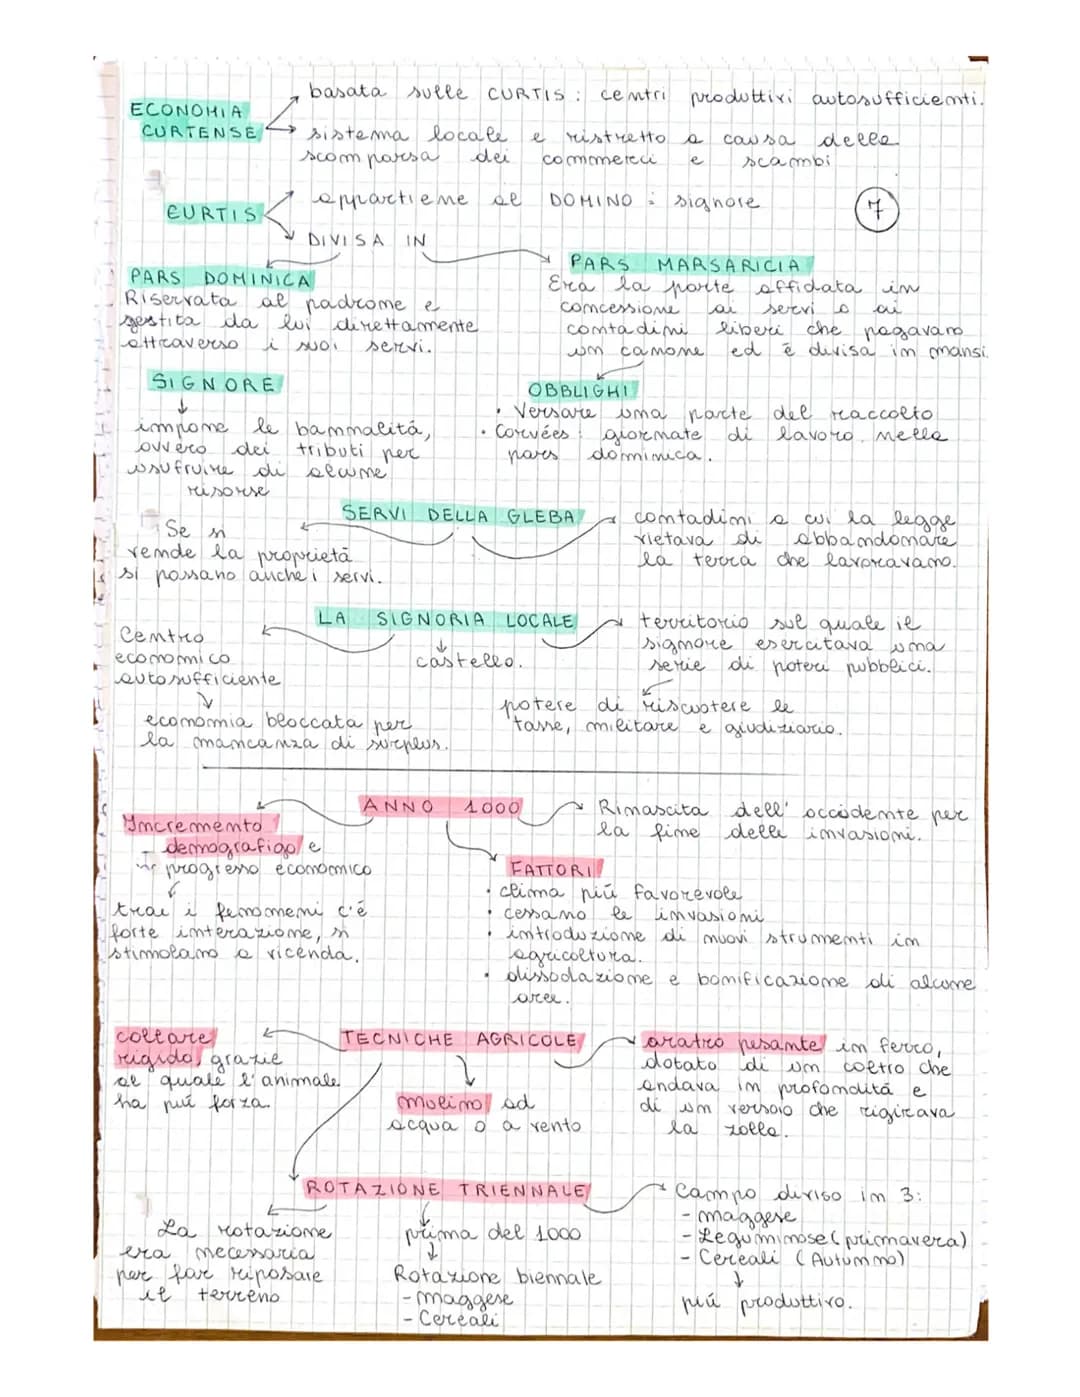 basata sulle CURTIS: centri produttivi autosufficienti.
ECONOMIA
CURTENSE
sistema locale e ristretto a causa della
scomparsa dei commerci e scambi
appartiene al DOMINO: signore
7
CURTIS
DIVISA IN
PARS DOMINICA
Riservata al padrone e
gestita da lui direttamente
attraverso i suoi servi.
PARS MARSARICIA
Era la parte affidata in
concessione ai servi o ai
contadini liberi che pagavano
un canone ed è divisa in mansi.
SIGNORE
impone le bannalitá,
ovvero dei tributi per
usufruire di alcune
risorse
OBBLIGHI
• Versare una parte del raccolto
• Corvées: giornate di lavoro nella
pars dominica.
SERVI DELLA GLEBA
Se si
vende la proprietà
si passano anche i servi.
contadini a cui la legge
vietava di abbandonare
la terra che lavoravano.
LA SIGNORIA LOCALE
Centro
economico
autosufficiente
castello.
territorio sul quale il
signore esercitava una
serie di poteri pubblici.
economia bloccata per
la mancanza di surplus.
potere di riscuotere le
tasse, militare e giudiziario.
ANNO 1000
Incremento
demografigo e
progresso economico
Rinascita dell' occidente per
la fine delle invasioni.
trai i fenomeni c'é
forte interazione, si
stimolano a vicenda.
FATTORI
• clima piú favorevole
• cessano le invasioni
• introduzione di nuovi strumenti in
agricoltura.
• dissodazione e bonificazione di alcune
aree.
TECNICHE AGRICOLE
collare
rigido, grazie
al quale l'animale
ha piú forza.
molino ad
acqua o a vento
aratro pesante in ferro,
dotato di un coltro che
andava in profonditá e
di un versoio che rigirava
la zolla.
ROTAZIONE TRIENNALE
La rotazione
era necessaria
per far riposare
il terreno
prima del 1000
Rotazione biennale
- maggese
- Cereali
Campo diviso in 3:
- maggese
- Leguminose (primavera)
- Cereali (Autunno)
piú produttivo.